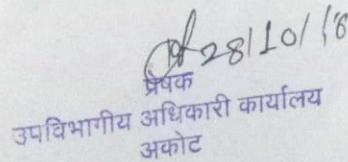 28/10/18
प्रेषक
उपविभागीय अधिकारी कार्यालय
अकोट